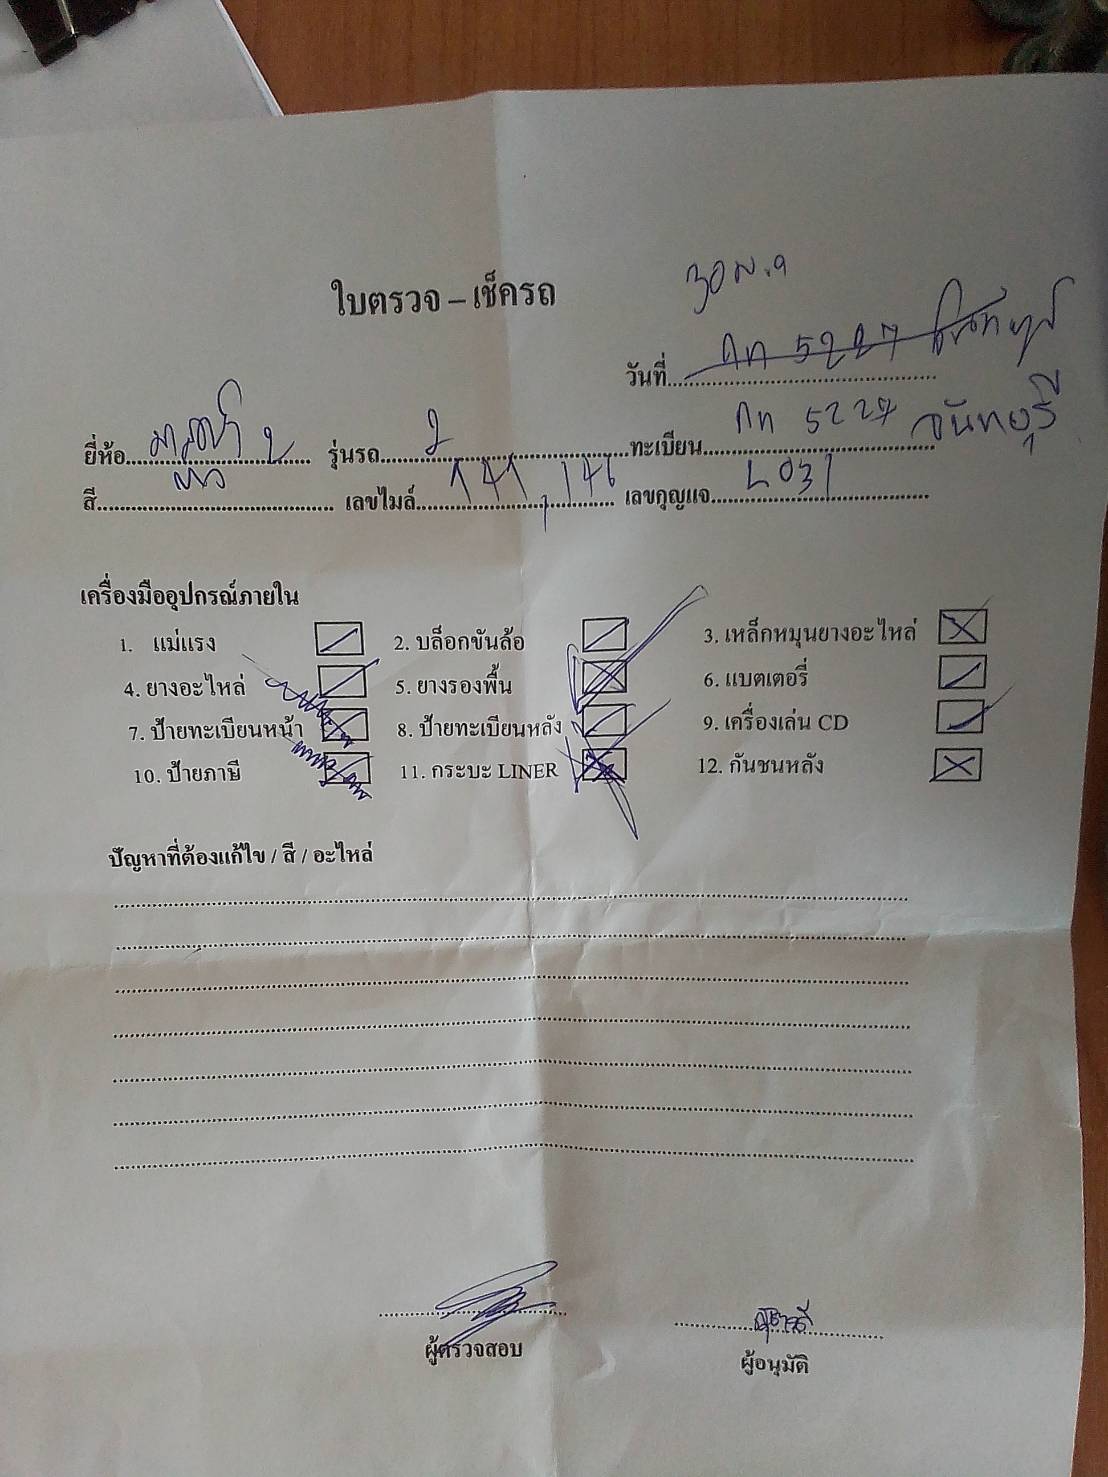 ใบตรวจ – เช็ครถ
30 ม.ค
วันที่ กท 5227 จันทบุรี
ยี่ห้อ มาสด้า 2 รุ่นรถ 2 ทะเบียน กท 5227 จันทบุรี
สี เลขไมล์ 141,146 เลขกุญแจ L031
เครื่องมืออุปกรณ์ภายใน
1. แม่แรง 2. บล็อกขันล้อ 3. เหล็กหมุนยางอะไหล่
4. ยางอะไหล่ 5. ยางรองพื้น 6. แบตเตอรี่
7. ป้ายทะเบียนหน้า 8. ป้ายทะเบียนหลัง 9. เครื่องเล่น CD
10. ป้ายภาษี 11. กระบะ LINER 12. กันชนหลัง
ปัญหาที่ต้องแก้ไข / สี / อะไหล่
ผู้ตรวจสอบ
ผู้อนุมัติ